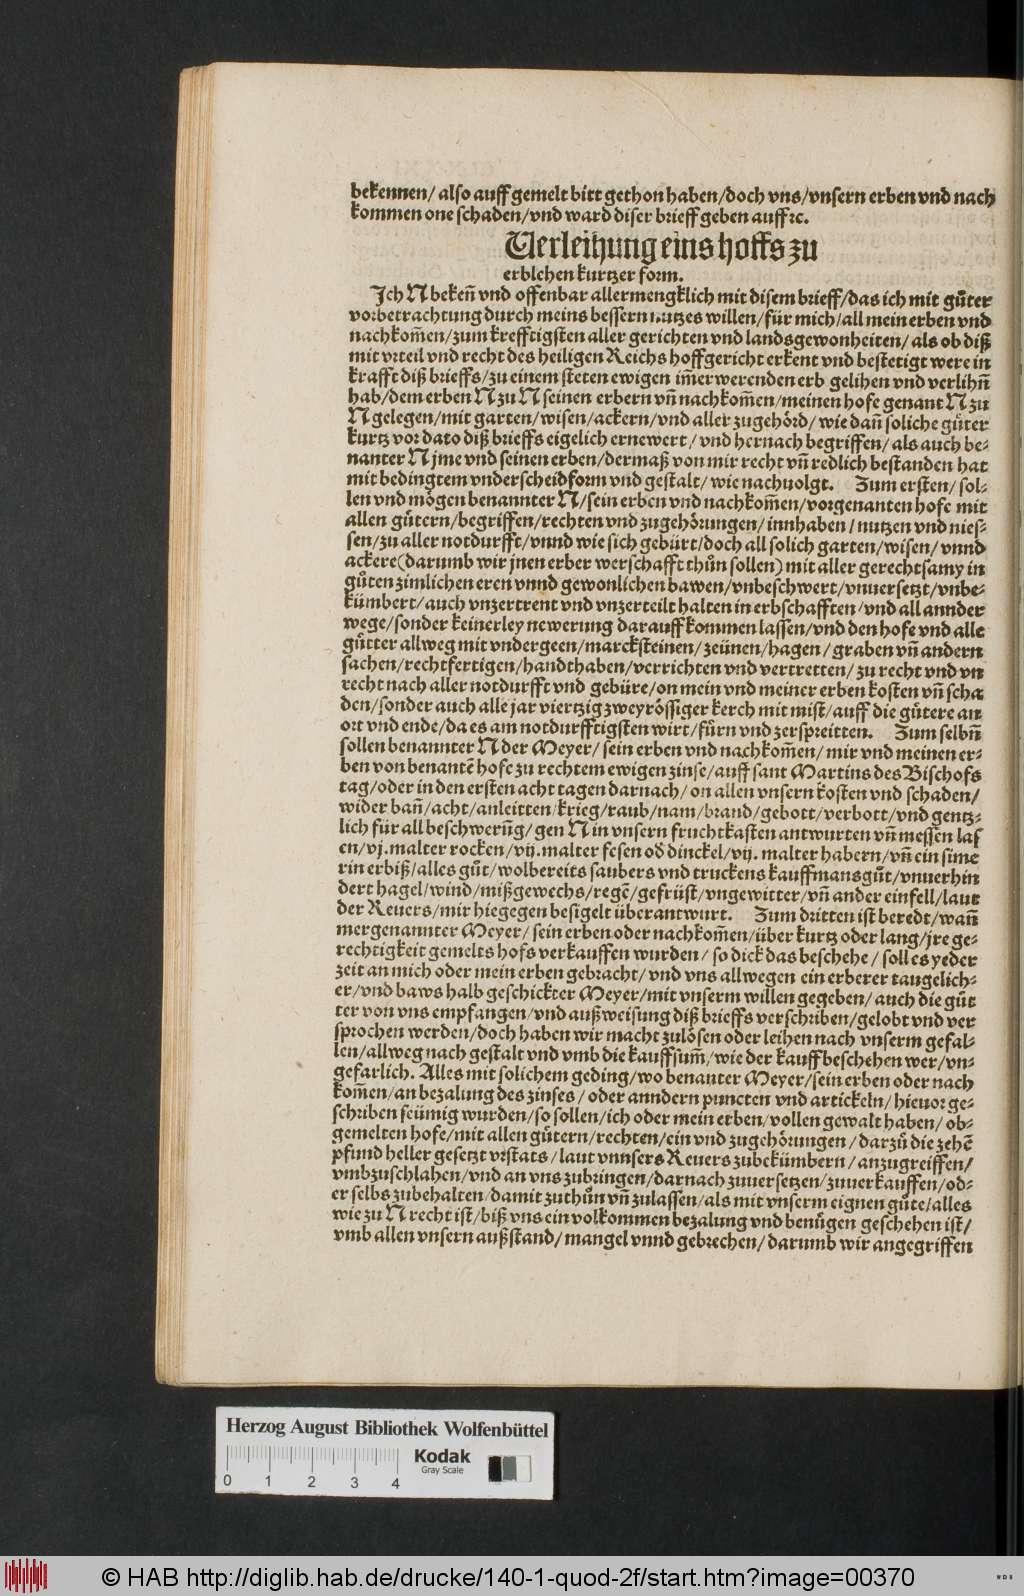 bekennen/ also auff gemelt bitt gethon haben/doch vns/vnsern erben vnd nach
kommen one schaden/vnd ward diser brieff geben auff ꝛc.
Verleihung eins hoffs zu
erblehen kurtzer form.
Ich N bekeñ vnd offenbar allermengklich mit disem brieff/das ich mit gůter
vorbetrachtung durch meins bessern nutzes willen/für mich/all mein erben vnd
nachkom̃en/zum krefftigsten aller gerichten vnd landsgewonheiten/ als ob diß
mit vrteil vnd recht des heiligen Reichs hoffgericht erkent vnd bestetigt were in
krafft diß brieffs/zu einem steten ewigen im̃erwerenden erb gelihen vnd verlihñ
hab/dem erben N zu N seinen erbern vñ nachkom̃en/meinen hofe genant N zu
N gelegen/mit garten/wisen/ackern/vnd aller zugehörd/ wie dañ soliche gůter
kurtz vor dato diß brieffs eigelich ernewert/ vnd hernach begriffen/ als auch be⸗
nanter N jme vnd seinen erben/dermaß von mir recht vñ redlich bestanden hat
mit bedingtem vnderscheidform vnd gestalt/ wie nachuolgt. Zum ersten/ sol⸗
len vnd mögen benannter N/sein erben vnd nachkom̃en/vorgenanten hofe mit
allen gůtern/begriffen/rechten vnd zugehörungen/ innhaben/ nutzen vnd nies⸗
sen/zu aller notdurfft/vnnd wie sich gebürt/doch all solich garten/wisen/ vnnd
ackere(darumb wir jnen erber werschafft thůn sollen) mit aller gerechtsamy in
gůten zimlichen eren vnnd gewonlichen bawen/vnbeschwert/vnuersetzt/vnbe⸗
kümbert/auch vnzertrent vnd vnzerteilt halten in erbschafften/vnd all annder
wege/sonder keinerley newerung darauff kommen lassen/vnd den hofe vnd alle
gůtter allweg mit vndergeen/marcksteinen/zeünen/hagen/ graben vñ andern
sachen/rechtfertigen/handthaben/verrichten vnd vertretten/ zu recht vnd vn
recht nach aller notdurfft vnd gebüre/on mein vnd meiner erben kosten vñ scha
den/sonder auch alle jar viertzig zweyrössiger kerch mit mist/auff die gůtere an
ort vnd ende/da es am notdurfftigsten wirt/fürn vnd zerspreitten. Zum selbñ
sollen benannter N der Meyer/ sein erben vnd nachkom̃en/ mir vnd meinen er⸗
ben von benantẽ hofe zu rechtem ewigen zinse/auff sant Martins des Bischofs
tag/oder in den ersten acht tagen darnach/ on allen vnsern kosten vnd schaden/
wider bañ/acht/anleitten/krieg/raub/nam/brand/gebott/verbott/vnd gentz⸗
lich für all beschwerũg/gen N in vnsern fruchtkasten antwurten vñ messen las
en/vj.malter rocken/vij.malter fesen oð dinckel/vij. malter habern/vñ ein sime
rin erbiß/alles gůt/wolbereits saubers vnd truckens kauffmansgůt/vnuerhin
dert hagel/wind/mißgewechs/regẽ/gefrüst/vngewitter/vñ ander einfell/laut
der Reuers/mir hiegegen besigelt überantwurt. Zum dritten ist beredt/wañ
mergenannter Meyer/ sein erben oder nachkom̃en/über kurtz oder lang/jre ge⸗
rechtigkeit gemelts hofs verkauffen wurden/ so dick das beschehe/ soll es yeder
zeit an mich oder mein erben gebracht/vnd vns allwegen ein erberer taugelich⸗
er/vnd baws halb geschickter Meyer/mit vnserm willen gegeben/ auch die gůt
ter von vns empfangen/vnd außweisung diß brieffs verschriben/gelobt vnd ver
sprochen werden/doch haben wir macht zulösen oder leihen nach vnserm gefal⸗
len/allweg nach gestalt vnd vmb die kauffsum̃/wie der kauff beschehen wer/vn⸗
gefarlich. Alles mit solichem geding/wo benanter Meyer/sein erben oder nach
kom̃en/an bezalung des zinses/ oder anndern puncten vnd artickeln/hieuor ge⸗
schriben seümig wurden/so sollen/ich oder mein erben/vollen gewalt haben/ ob⸗
gemelten hofe/mit allen gůtern/rechten/ein vnd zugehörungen/ darzů die zehẽ
pfund heller gesetzt vrstats/ laut vnnsers Reuers zubekümbern/anzugreiffen/
vmbzuschlahen/vnd an vns zubringen/darnach zuuersetzen/zuuerkauffen/od⸗
er selbs zubehalten/damit zuthůn vñ zulassen/als mit vnserm eignen gůte/alles
wie zu N recht ist/biß vns ein volkommen bezalung vnd benügen geschehen ist/
vmb allen vnsern außstand/ mangel vnnd gebrechen/ darumb wir angegriffen
Herzog August Bibliothek Wolfenbüttel
Kodak
Gray Scale
0 1 2 3 4
© HAB http://diglib.hab.de/drucke/140-1-quod-2f/start.htm?image=00370